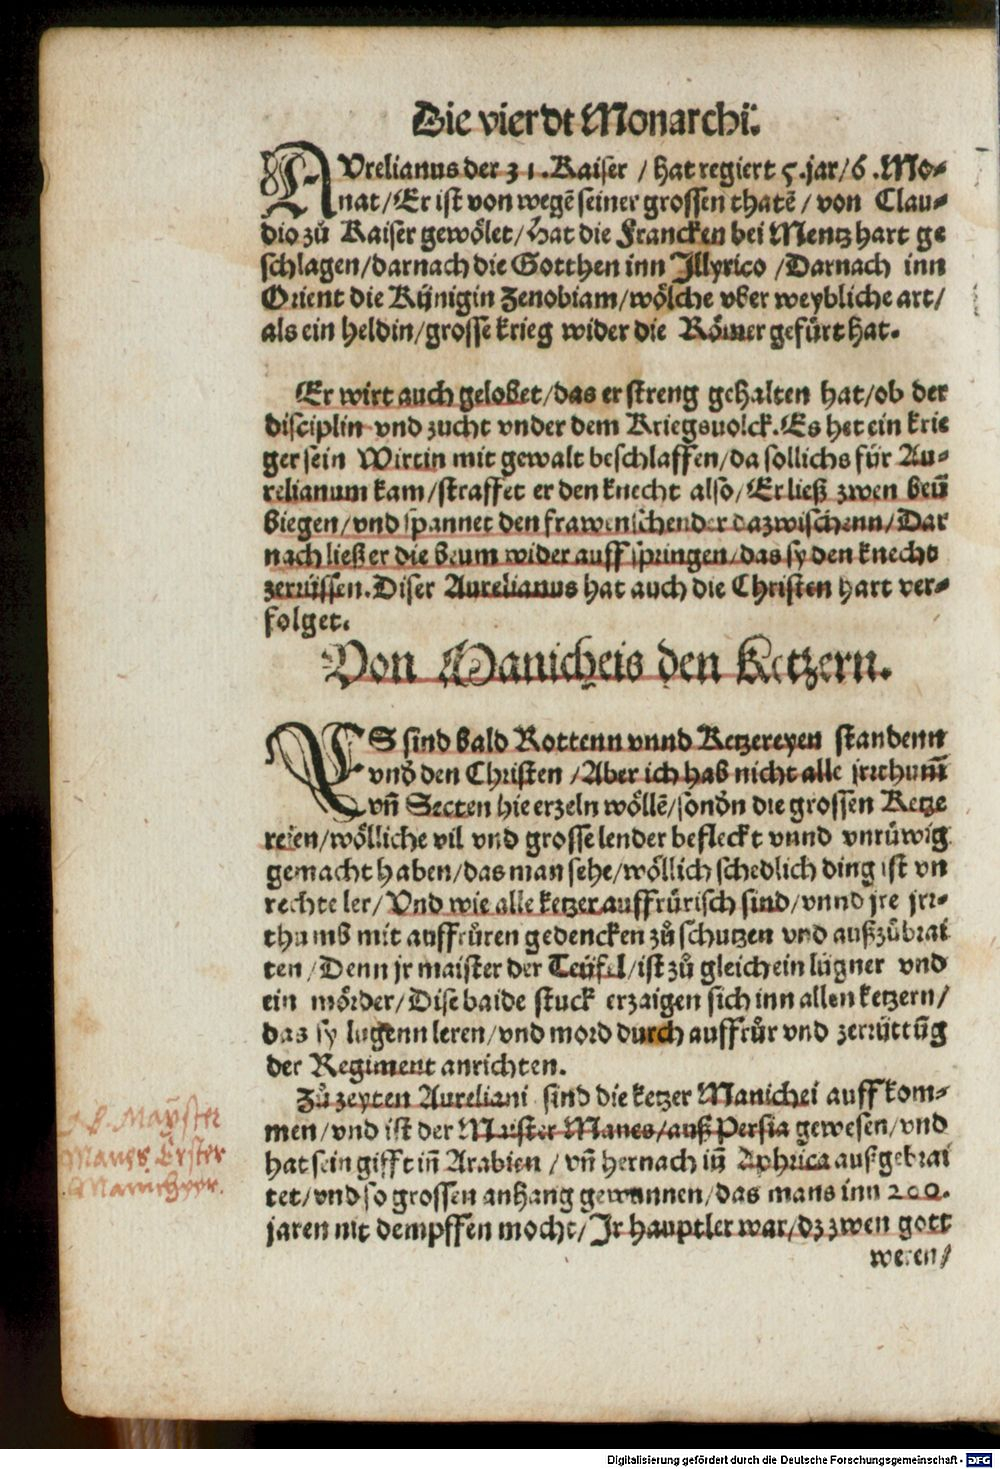 Die vierdt Monarchi.
AVrelianus der 31. Kaiser / hat regiert 5. jar/ 6. Mo-
nat/ Er ist von wegẽ seiner grossen thatẽ / von Clau-
dio zů Kaiser gewölet/ Hat die Francken bei Mentz hart ge
schlagen/ darnach die Gotthen inn Jllyrico / Darnach inn
Orient die Künigin Zenobiam/ wölche vber weybliche art/
als ein heldin/ grosse krieg wider die Römer gefürt hat.
Er wirt auch gelobet/ das er streng gehalten hat/ ob der
disciplin vnd zucht vnder dem Kriegsuolck. Es het ein krie
ger sein Wirtin mit gewalt beschlaffen/ da sollichs für Au-
relianum kam/ straffet er den knecht also/ Er ließ zwen beũ
biegen/ vnd spannet den frawenschender dazwischenn/ Dar
nach ließ er die beum wider auff springen/ das sy den knecht
zerrissen. Diser Aurelianus hat auch die Christen hart ver-
folget.
Von Manicheis den Ketzern.
ES sind bald Rottenn vnnd Ketzereyen standenn
vnd den Christen / Aber ich hab nicht alle jrrthum̃
vñ Secten hie erzeln wöllẽ/ sondn die grossen Ketze
reien/ wölliche vil vnd grosse lender befleckt vnnd vnrüwig
gemacht haben/ das man sehe/ wöllich schedlich ding ist vn
rechte ler/ Vnd wie alle ketzer auffrürisch sind/ vnnd jre jrr-
thumb mit auffrüren gedencken zů schutzen vnd außzůbrai
ten / Denn jr maister der Teüfel/ ist zů gleich ein lügner vnd
ein mörder/ Dise baide stuck erzaigen sich inn allen ketzern/
das sy lugenn leren/ vnd mord durch auffrůr vnd zerrüttũg
der Regiment anrichten.
Zů zeyten Aureliani sind die ketzer Manichei auff kom-
men/ vnd ist der Maister Manes/ auß Persia gewesen/ vnd
hat sein gifft iñ Arabien / vñ hernach iñ Aphrica außgebrai
tet/ vnd so grossen anhang gewunnen/ das mans inn 200.
jaren nit dempffen mocht/ Jr hauptler war/ dz zwen gott
weren/
Maÿster
Manes Erster
Manicheor.
Digitalisierung gefördert durch die Deutsche Forschungsgemeinschaft - DFG